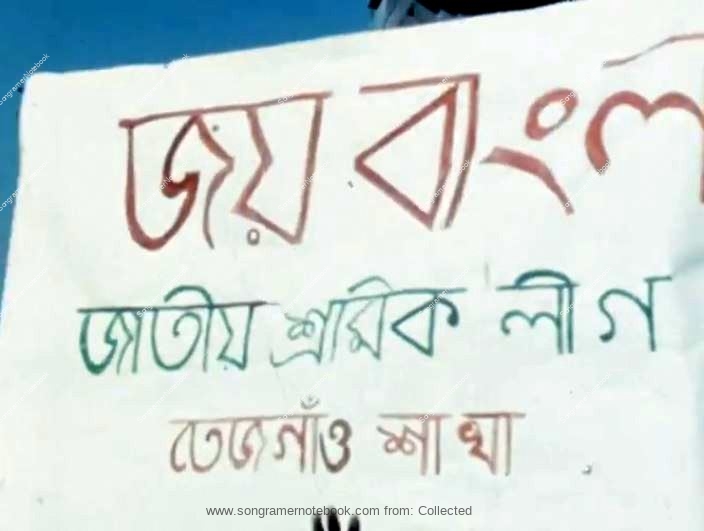 জয় বাংল
জাতীয় শ্রমিক লীগ
তেজগাঁও শাখা
www.songramernotebook.com from: Collected